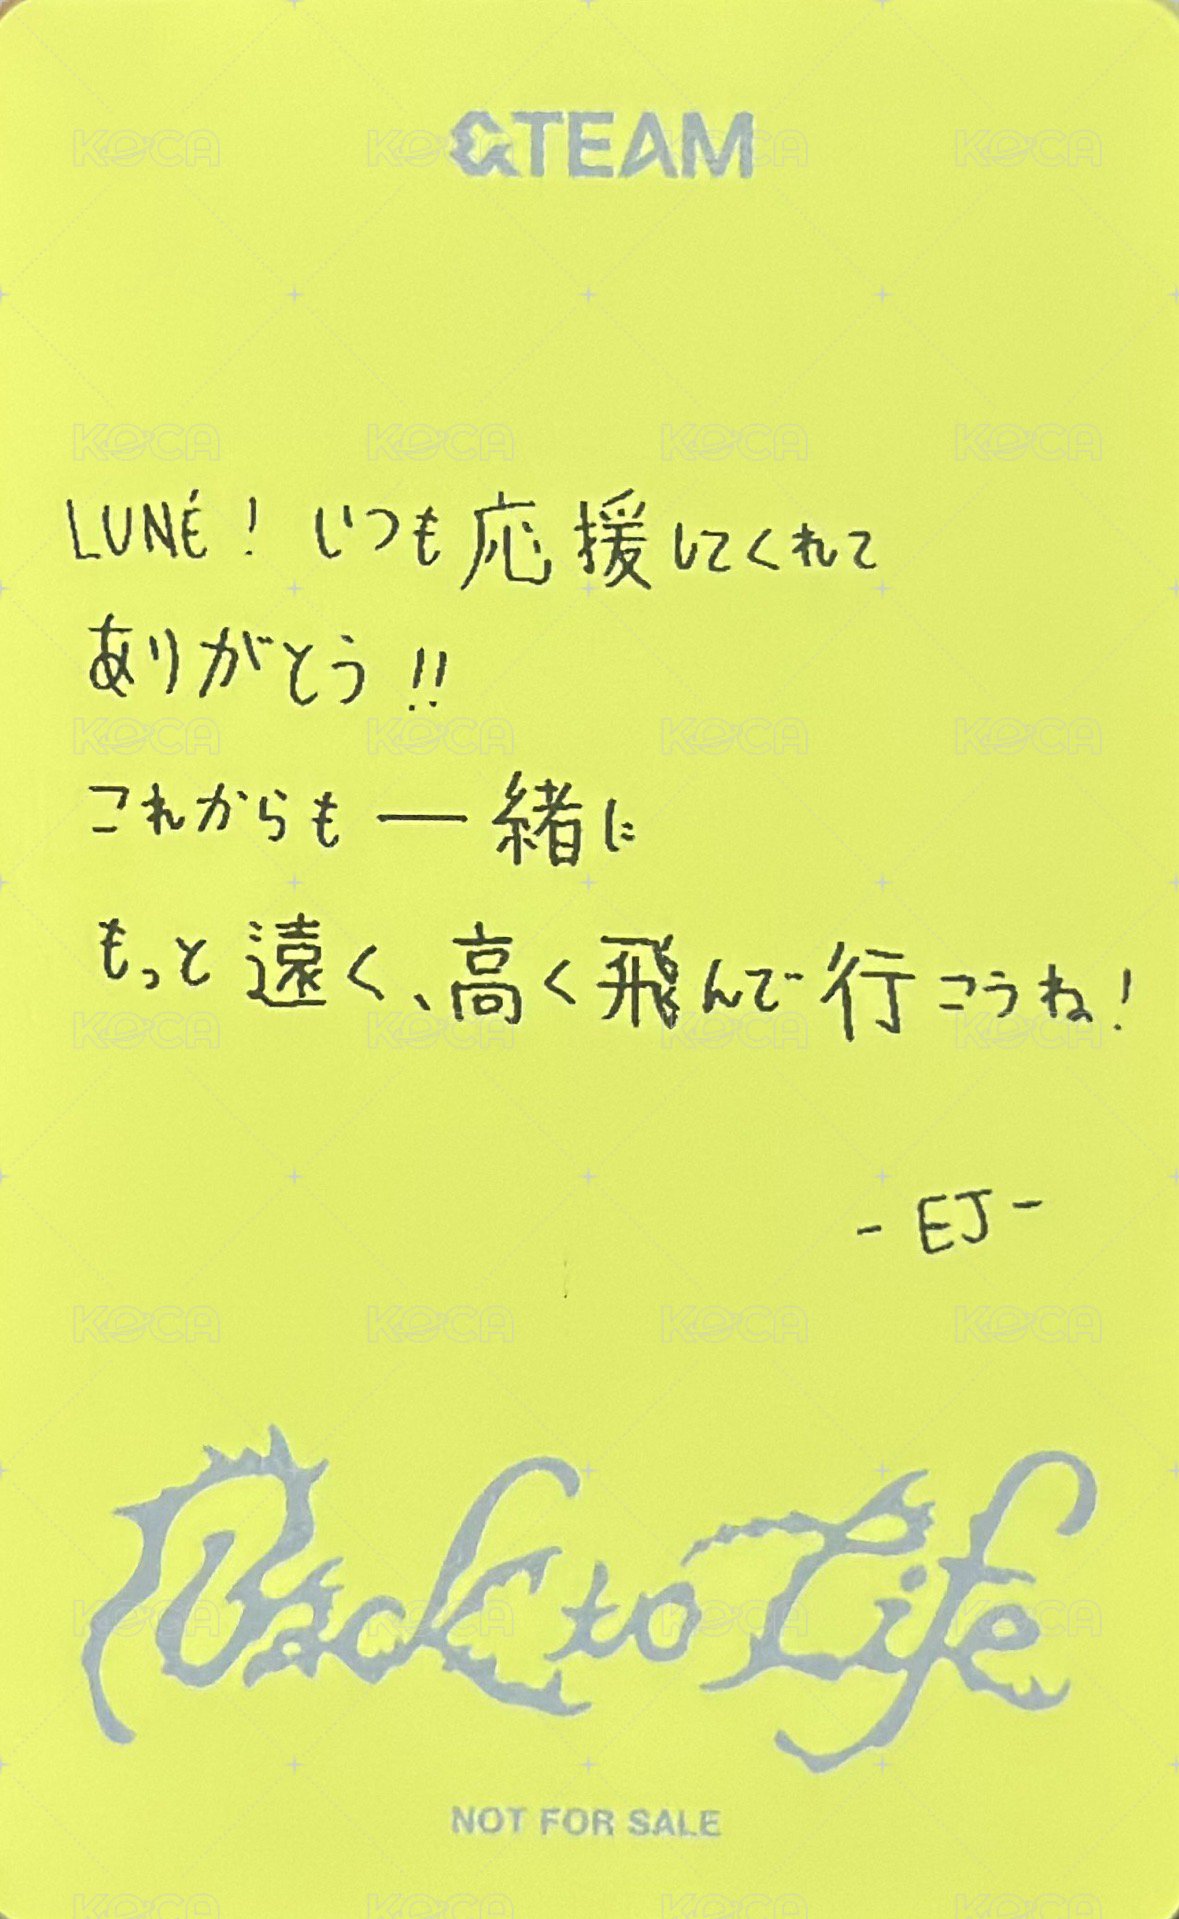 &TEAM
LUNÉ! いつも応援してくれて
ありがとう!!
これからも一緒に
もっと遠く、高く飛んで行こうね!
- EJ -
Back to Life
NOT FOR SALE
KOCA